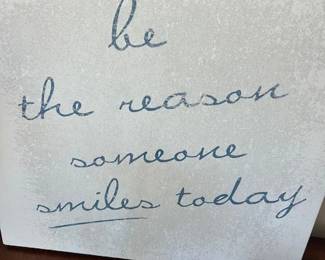 be
the reason
someone
smiles today